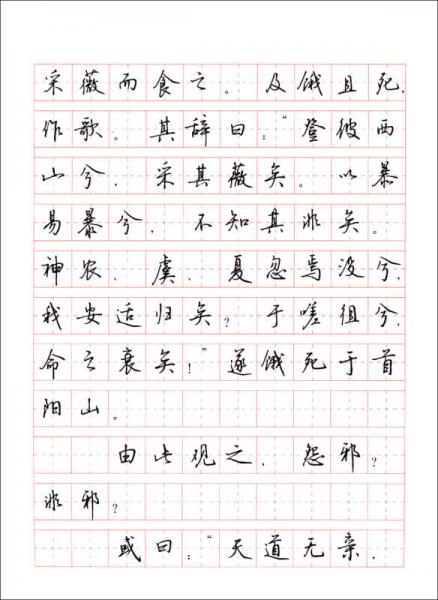 采薇而食之。及饿且死，
作歌。其辞曰：“登彼西
山兮，采其薇矣。以暴
易暴兮，不知其非矣。
神农、虞、夏忽焉没兮，
我安适归矣？于嗟徂兮，
命之衰矣！”遂饿死于首
阳山。
由此观之，怨邪？
非邪？
或曰：“天道无亲，